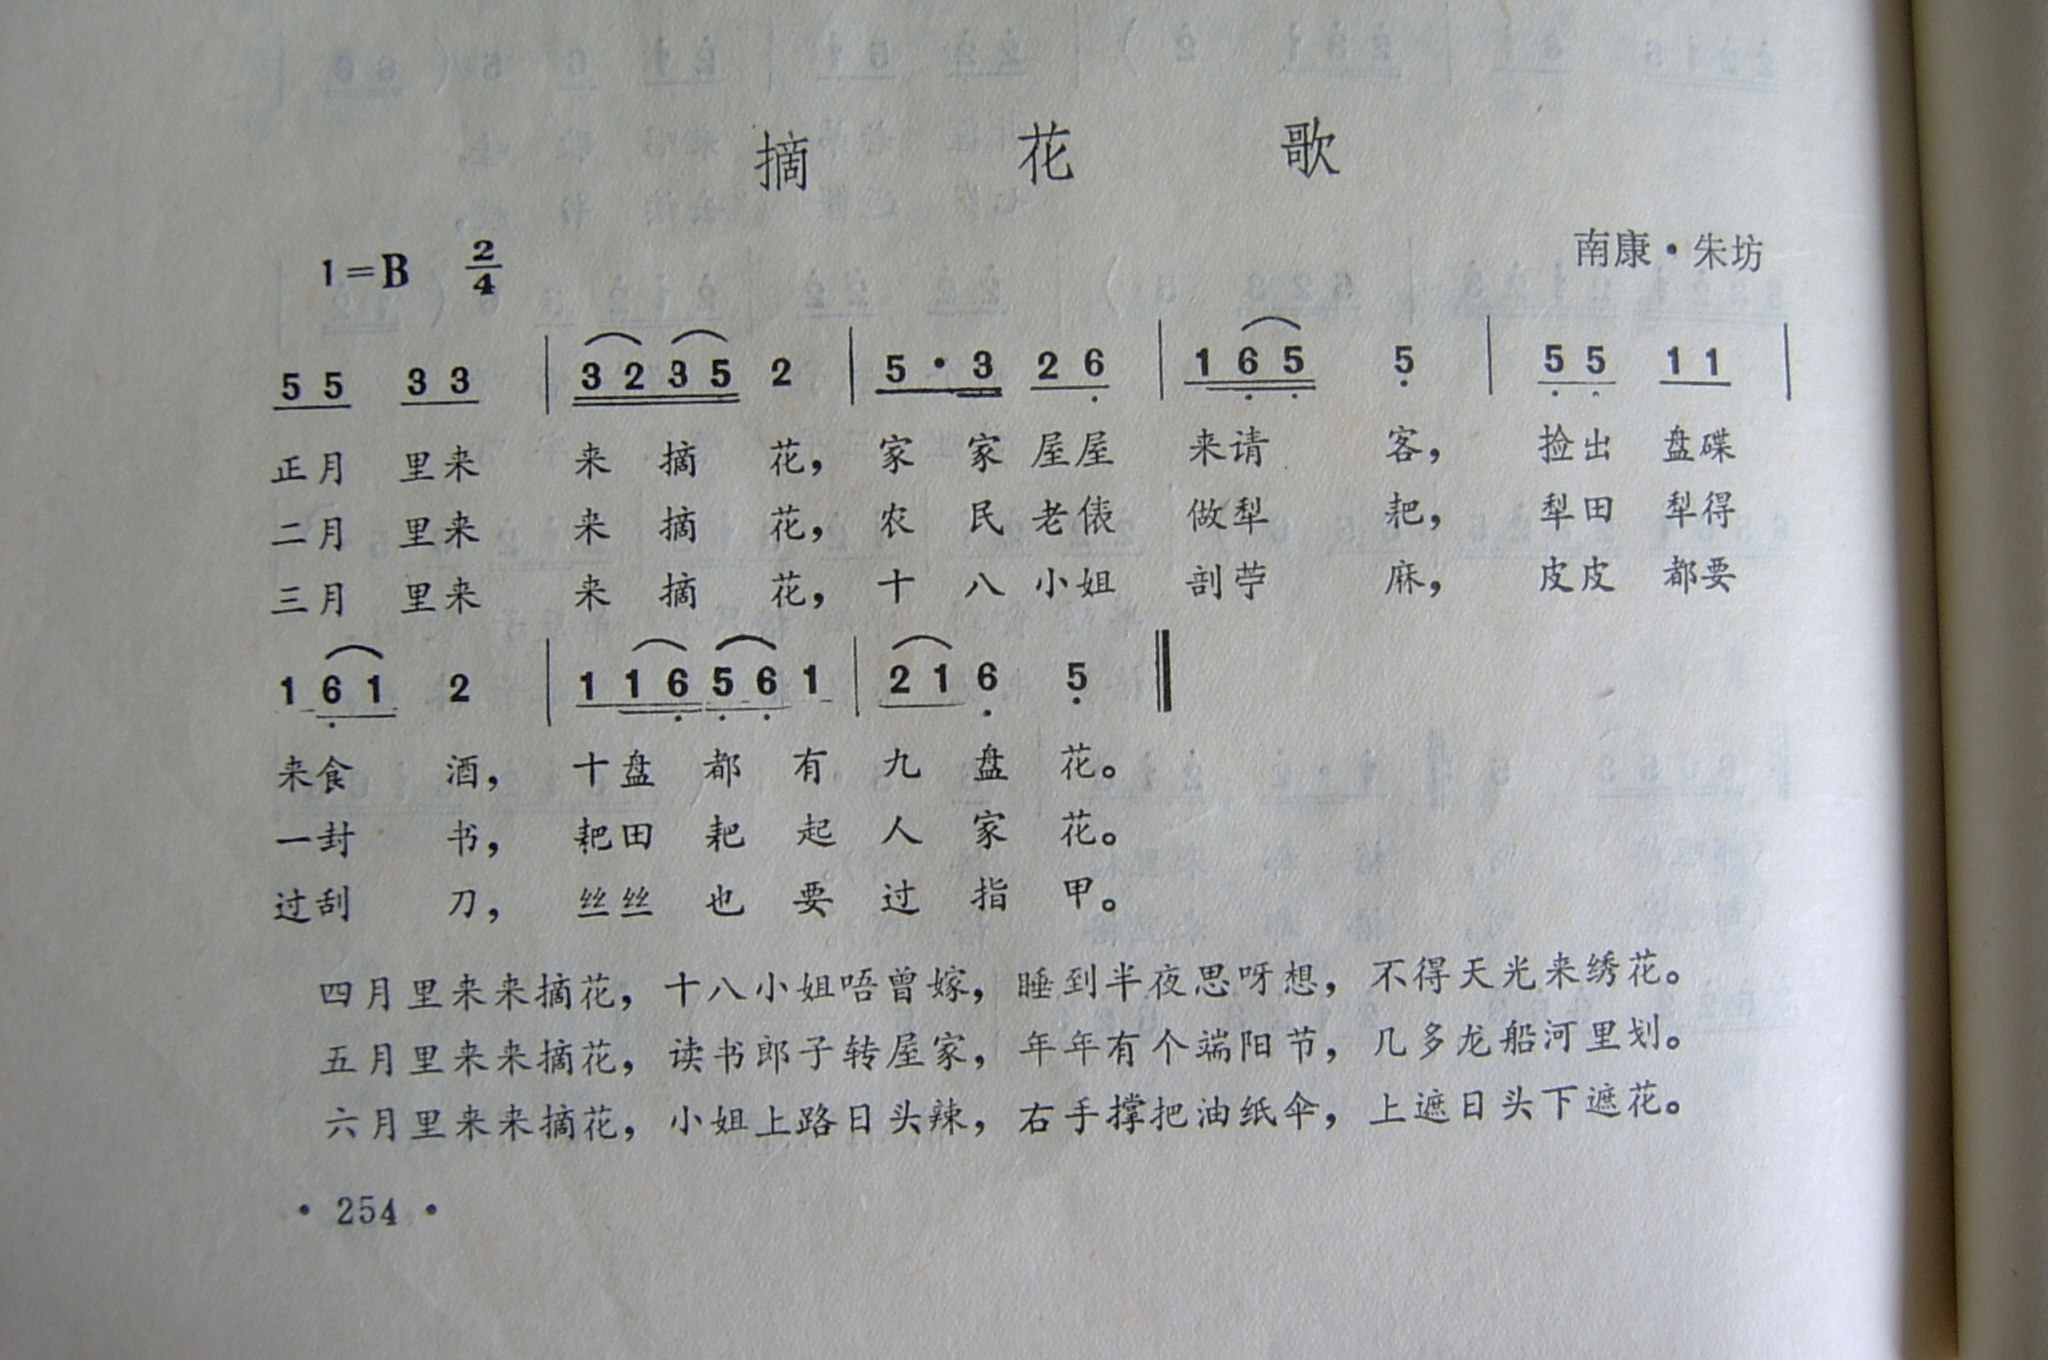 摘花歌
1=B 2/4
南康·朱坊
5 5 3 3 | 3 2 3 5 2 | 5 · 3 2 6 | 1 6 5 5 | 5 5 1 1 |
正月 里来 来 摘 花， 家 家 屋屋 来请 客， 捡出 盘碟
二月 里来 来 摘 花， 农 民 老俵 做犁 耙， 犁田 犁得
三月 里来 来 摘 花， 十 八 小姐 剖苧 麻， 皮皮 都要
1 6 1 2 | 1 1 6 5 6 1 | 2 1 6 5 ‖
来食 酒， 十盘 都 有 九 盘 花。
一封 书， 耙田 耙 起 人 家 花。
过刮 刀， 丝丝 也 要 过 指 甲。
四月里来来摘花，十八小姐唔曾嫁，睡到半夜思呀想，不得天光来绣花。
五月里来来摘花，读书郎子转屋家，年年有个端阳节，几多龙船河里划。
六月里来来摘花，小姐上路日头辣，右手撑把油纸伞，上遮日头下遮花。
· 254 ·